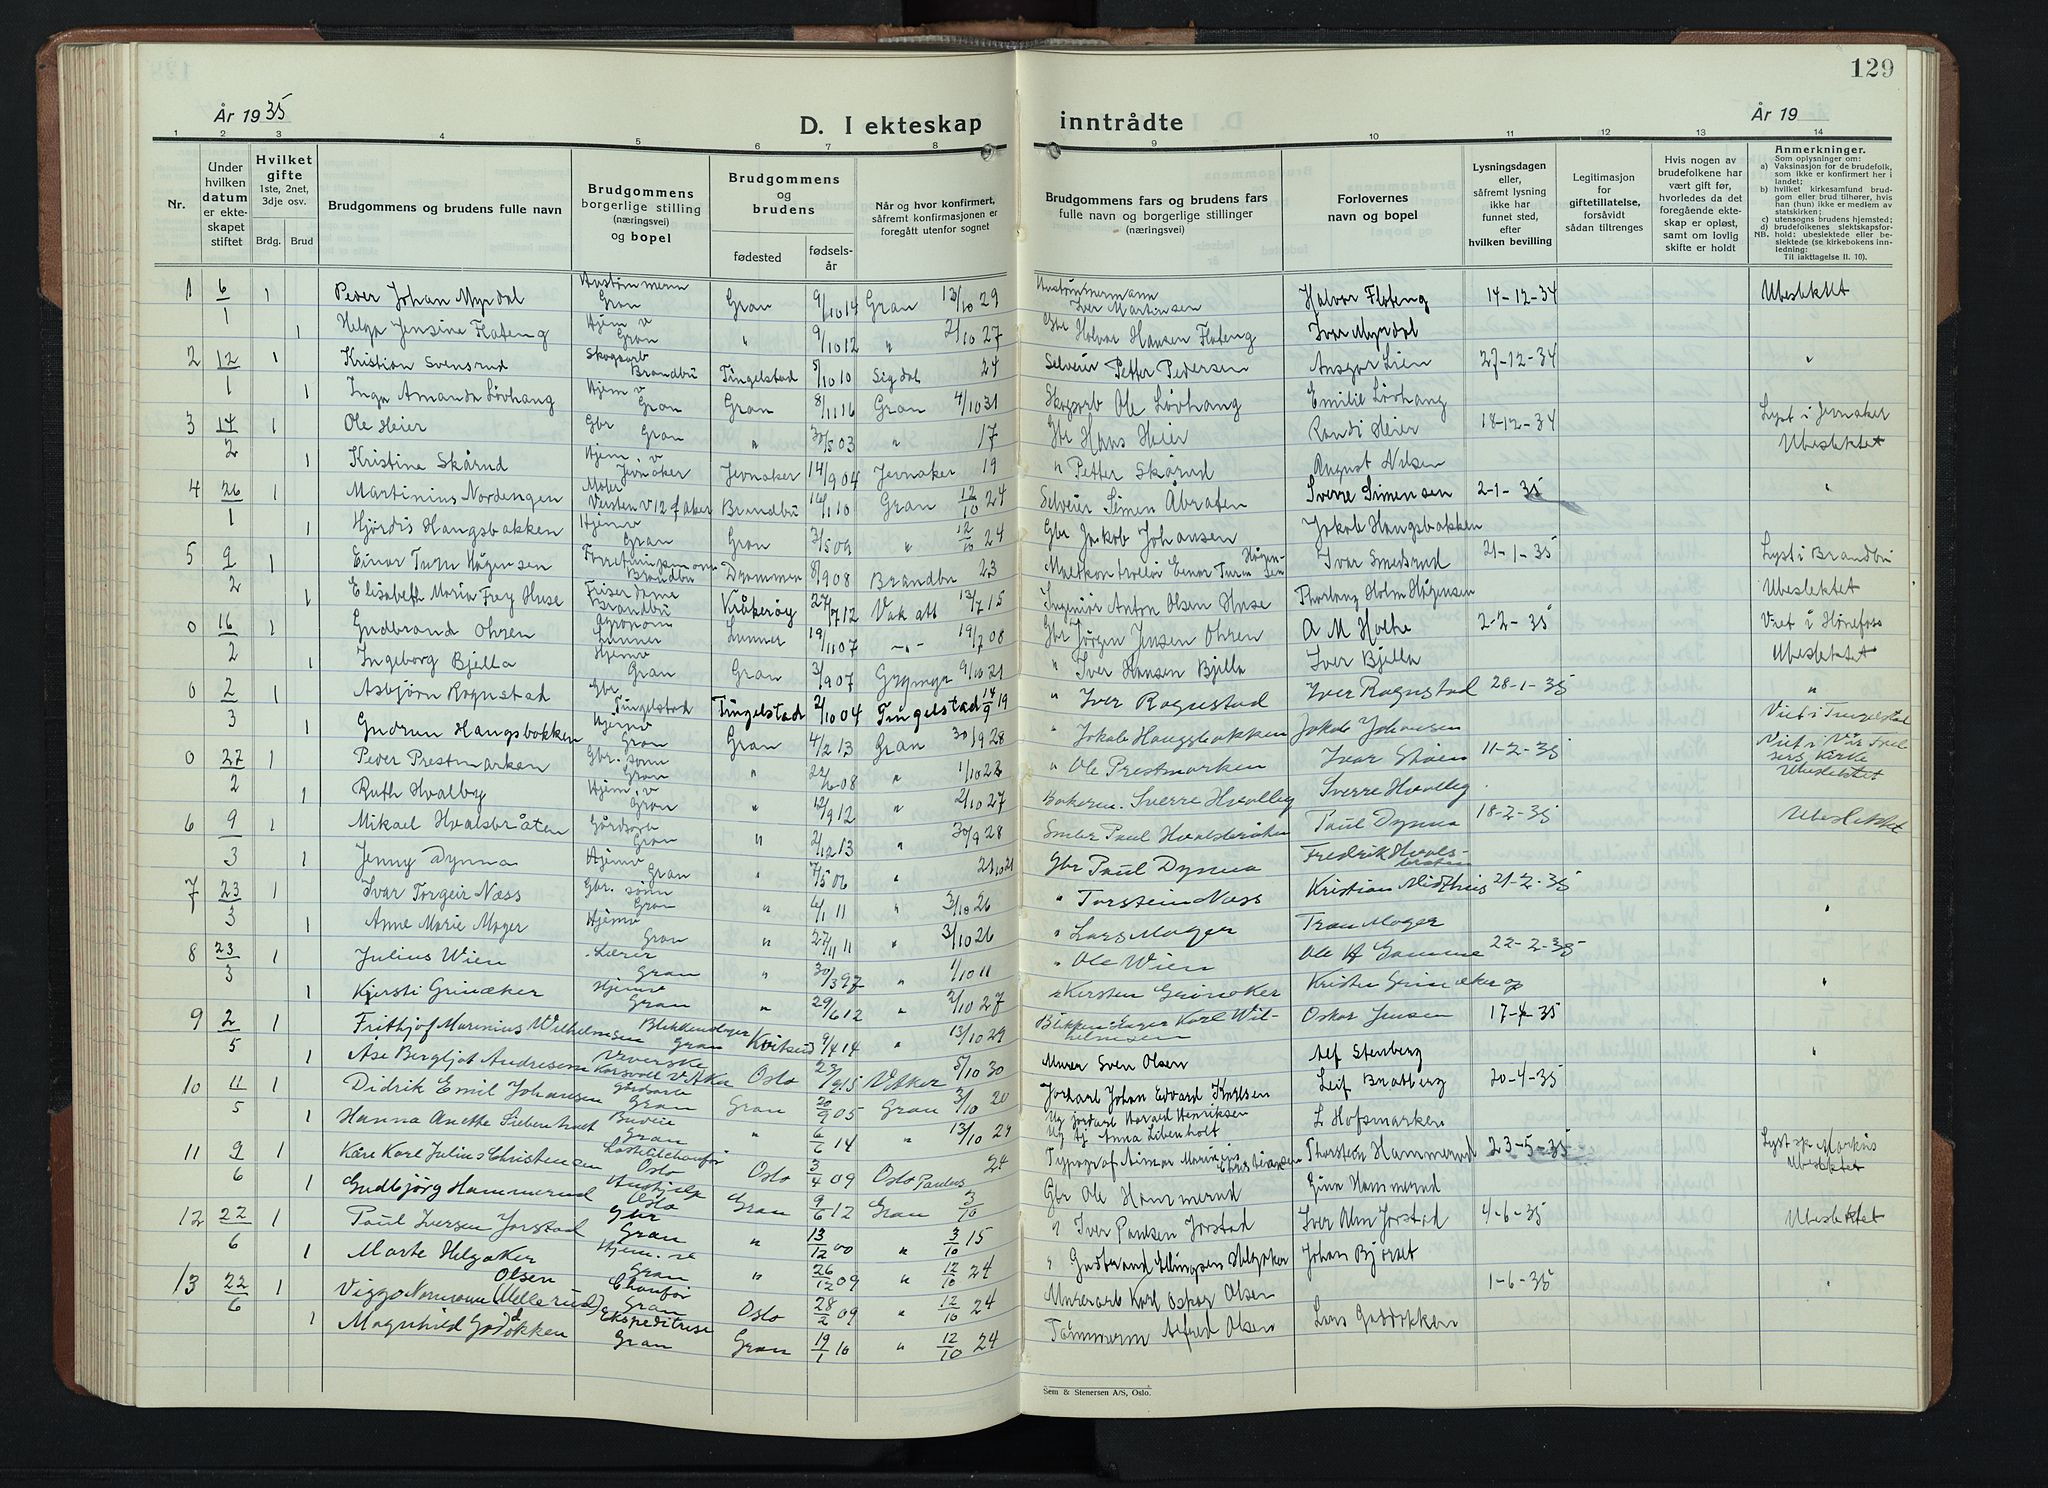 129
År 1935
D. I ekteskap inntrådte
År 19
1 2 3 4 5 6 7 8 9 10 11 12 13 14
Nr.
Under hvilken datum er ekteskapet stiftet
Hvilket gifte 1ste, 2net, 3dje osv.
Brdg. Brud
Brudgommens og brudens fulle navn
Brudgommens borgerlige stilling (næringsvei) og bopel
Brudgommens og brudens
fødested
fødselsår
Når og hvor konfirmert, såfremt konfirmasjonen er foregått utenfor sognet
Brudgommens fars og brudens fars fulle navn og borgerlige stillinger (næringsvei)
Forlovernes navn og bopel
Lysningsdagen eller, såfremt lysning ikke har funnet sted, efter hvilken bevilling
Legitimasjon for giftetillatelse, forsåvidt sådan tiltrenges
Hvis nogen av brudefolkene har vært gift før, hvorledes da det foregående ekteskap er opløst, samt om lovlig skifte er holdt
Anmerkninger.
Som oplysninger om:
a) Vaksinasjon for de brudefolk, som ikke er konfirmert her i landet;
b) hvilket kirkesamfund brudgom eller brud tilhører, hvis han (hun) ikke er medlem av statskirken;
c) utensogns brudens hjemsted;
d) brudefolkenes slektskapsforhold: ubeslektede eller beslektede (se kirkebokens innledning:
NB. Til iakttagelse II. 10).
1 6/1 1 Peder Johan Myrdal Gran Gran 9/10 14 Gran 13/10 29 Iver Martinsen Halvor Floteng 14-12-34 Ubeslektet
1 Helga Jensine Floteng Hjem v Gran " 9/10 12 " 2/10 27 Gbr Halvor Hansen Floteng Iver Myrdal
2 12/1 1 Kristian Svensrud Skogsarb Brandbu Tingelstad 5/10 10 Sigdal 24 Selveier Petter Pedersen Ansgar Lien 27-12-34 "
1 Inga Amanda Løvhaug Hjem v Gran Gran 8/11 16 Gran 4/10 31 Skogsarb Ole Løvhaug Emilie Løvhaug
3 14/2 1 Ole Heier Gbr Gran " 30/5 03 " 17 Gbr Hans Heier Randi Heier 18-12-34 Lyst i Jevnaker Ubeslektet
1 Kristine Skårud Hjem. v Jevnaker Jevnaker 14/9 04 Jevnaker 19 " Petter Skårud August Nilsen
4 26/1 1 Martinius Nordengen Maler Brandbu 14/1 10 Gran 12/10 24 Selveier Simen Åbråten Sverre Simensen 2-1-35 "
1 Hjørdis Haugsbakken Hjemv Gran Gran 3/5 09 " 12/10 24 Gbr Jakob Johansen Jakob Haugsbakken
5 9/2 1 Einar Turn Hågensen Brandbu Drammen 8/9 08 Brandbu 23 Einar Turn Hågensen Ivar Smedsrud 21-1-35 Lyst i Brandbu Ubeslektet
1 Elisabeth Maria Frey Huse Friserdame Brandbu Kråkerøy 27/7 12 Vak att 13/7 15 Ingeniør Anton Olsen Huse Thorlang Holm Hågensen
0 16/2 1 Gudbrand Ohren Agronom Lunner Lunner 19/11 07 -"- 19/2 08 Gbr Jørgen Jensen Ohren A M Holthe 2-2-35 Viet i Hønefoss Ubeslektet
1 Ingeborg Bjella Hjemv Gran Gran 3/9 07 9/10 21 " Iver Hansen Bjella Iver Bjella
0 2/3 1 Asbjørn Rognstad Gbr. Tingelstad Tingelstad 2/10 04 Tingelstad 14/9 19 " Iver Rognstad Iver Rognstad 28-1-35 "
1 Gudrun Haugsbakken Hjemv Gran Gran 4/2 13 Gran 30/9 28 " Jakob Haugsbakken Jakob Johansen Viet i Tingelstad
0 27/2 1 Peder Prestmarken Gbr. sønn Gran " 22/6 08 " 1/10 23 " Ole Prestmarken Ivar Støen 11-2-35 Viet i Vår Frelsers Kirke Ubeslektet
1 Ruth Hvalby Hjem. v Gran " 12/9 12 " 2/10 27 Bakerm. Sverre Hvalby Sverre Hvalby
6 9/3 1 Mikael Hvalsbråten Gran " 2/12 13 " 30/9 28 Paul Hvalsbråten Paul Dynna 18-2-35 Ubeslektet
1 Jenny Dynna Hjemv Gran 7/5 06 " 21/10 21 Gbr Paul Dynna Fredrik Hvalsbråten
7 23/3 1 Ivar Torgeir Næss Gbr. sønn Gran " 6/1 11 " 3/10 26 " Torstein Næss Kristian Midtheis 21-2-35 "
1 Anne Marie Moger Hjemv Gran " 27/11 11 " 3/10 26 " Lars Moger Tron Moger
8 23/3 1 Julius Wien Lærer Gran " 30/3 97 " 1/10 11 " Ole Wien Ole H Gamme 22-2-35 "
1 Kjersti Grinaker Hjemv Gran " 29/6 12 " 2/10 27 " Kersten Grinaker Kristen Grinaker
9 2/5 1 Frithjof Marinius Wilhelmsen Blikkenslager Gran Kvitseid 9/4 14 " 13/10 29 Blikkenslager Karl Wilhelmsen Oskar Jensen 17-4-35 "
1 Åse Bergljot Andresen Veverske Korsvoll V Aker Oslo 23/9 15 V Aker 5/10 30 Murer Sven Olsen Alf Stenberg
10 11/5 1 Didrik Emil Johansen Gårdsarb Gran Gran 20/9 05 Gran 3/10 20 Jordarb Johan Edvard Karlsen Leif Bratberg 20-4-35
1 Hanna Anette Siebenhaet Budeie Gran " 6/6 14 " 13/10 29 Ug jordarb Harald Henriksen Ug tj Anna Libenholt L Hofsmarken
11 9/6 1 Kåre Karl Julius Christensen Lastebilchaufør Oslo Oslo 3/4 09 Oslo Paulus 24 Typograf Aimar Marinius Christiansen Thorstein Hammerud 23-5-35 Lyst Markus Ubeslektet
1 Gudbjörg Hammerud Hushjelp Oslo Gran 9/6 12 Gran 3/10 Gbr Ole Hammerud Gina Hammerud
12 22/6 1 Paul Iversen Jorstad Gbr Gran " 13/12 00 " 3/10 15 " Iver Paulsen Jorstad Iver Alm Jorstad 4-6-35 Ubeslektet
1 Marte Helgaker Hjem. v Gran " 26/12 09 " 12/10 24 " Gudbrand Ellingsen Helgaker Johan Bjørset
13 22/6 1 Viggo Normann Olsen (Mellerud) Chaufør Gran Oslo 28/2 09 " 12/10 24 Murerarb Karl Oskar Olsen 1-6-35 "
1 Magnhild Godbakken Ekspeditrise Gran Gran 19/1 10 " 12/10 24 Tømmerm Alfred Olsen Lars Godbakken
Sem & Stenersen A/S, Oslo.